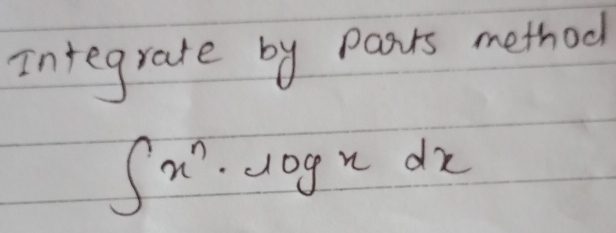 Integrate by parts method
∫ xⁿ. log x dx